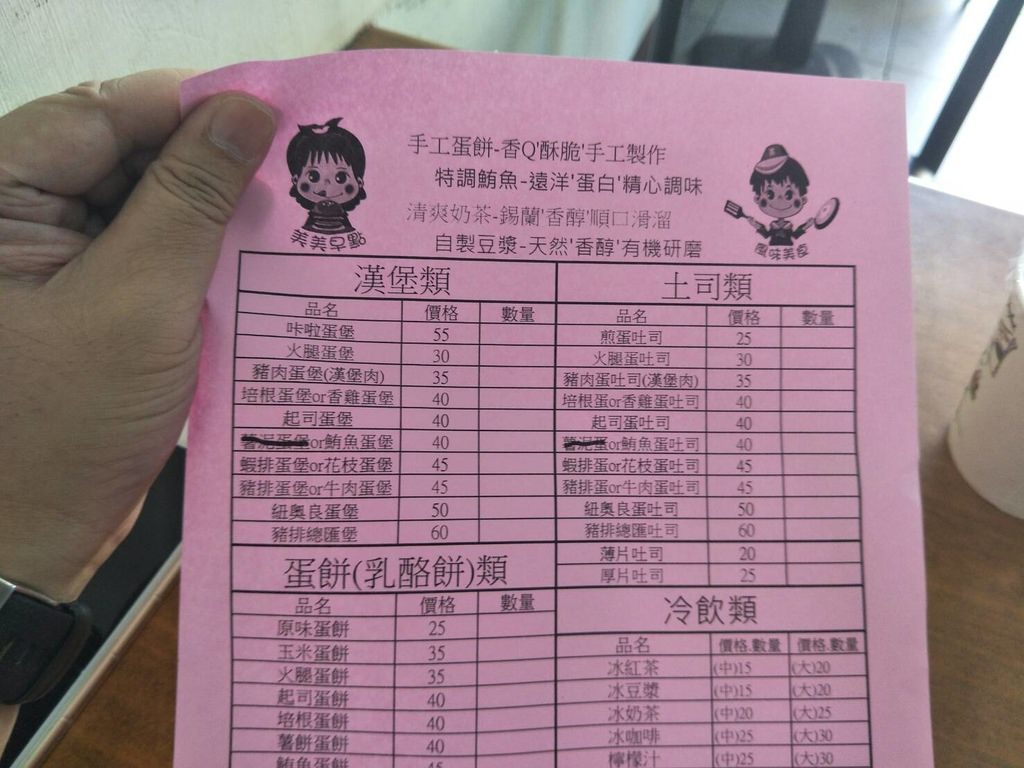 手工蛋餅-香Q'酥脆'手工製作
特調鮪魚-遠洋'蛋白'精心調味
清爽奶茶-錫蘭'香醇'順口滑溜
自製豆漿-天然'香醇'有機研磨
美美早點
風味美食
漢堡類
品名 價格 數量
咔啦蛋堡 55
火腿蛋堡 30
豬肉蛋堡(漢堡肉) 35
培根蛋堡or香雞蛋堡 40
起司蛋堡 40
薯泥蛋堡or鮪魚蛋堡 40
蝦排蛋堡or花枝蛋堡 45
豬排蛋堡or牛肉蛋堡 45
紐奧良蛋堡 50
豬排總匯堡 60
土司類
品名 價格 數量
煎蛋吐司 25
火腿蛋吐司 30
豬肉蛋吐司(漢堡肉) 35
培根蛋or香雞蛋吐司 40
起司蛋吐司 40
薯泥蛋or鮪魚蛋吐司 40
蝦排蛋or花枝蛋吐司 45
豬排蛋or牛肉蛋吐司 45
紐奧良蛋吐司 50
豬排總匯吐司 60
薄片吐司 20
厚片吐司 25
蛋餅(乳酪餅)類
品名 價格 數量
原味蛋餅 25
玉米蛋餅 35
火腿蛋餅 35
起司蛋餅 40
培根蛋餅 40
薯餅蛋餅 40
鮪魚蛋餅 45
冷飲類
品名 價格.數量 價格.數量
冰紅茶 (中)15 (大)20
冰豆漿 (中)15 (大)20
冰奶茶 (中)20 (大)25
冰咖啡 (中)25 (大)30
檸檬汁 (中)25 (大)30